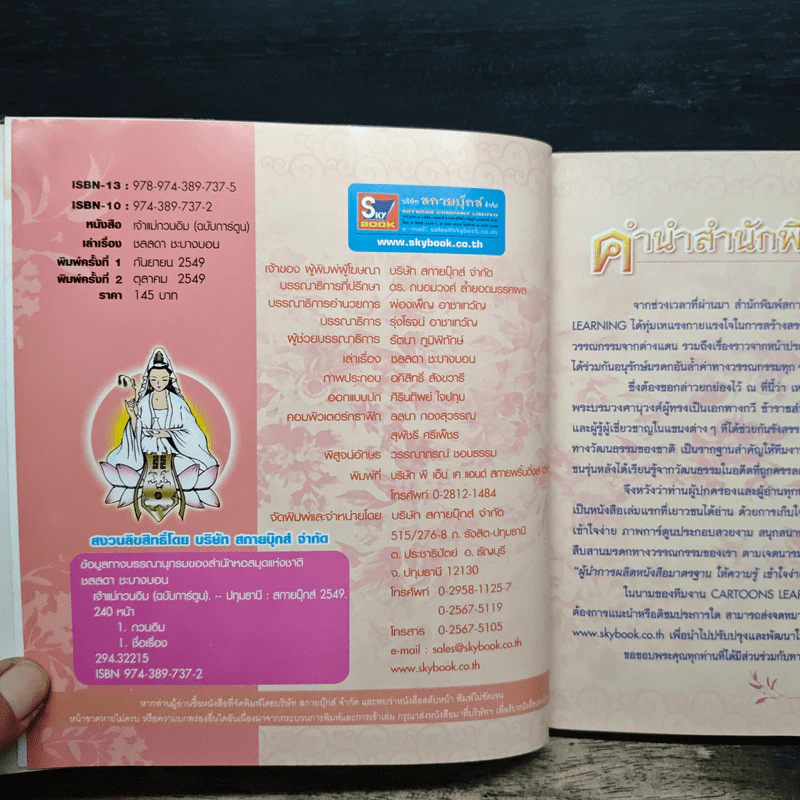 ISBN-13 : 978-974-389-737-5
ISBN-10 : 974-389-737-2
หนังสือ เจ้าแม่กวนอิม (ฉบับการ์ตูน)
เล่าเรื่อง ชลลดา ชะบางบอน
พิมพ์ครั้งที่ 1 กันยายน 2549
พิมพ์ครั้งที่ 2 ตุลาคม 2549
ราคา 145 บาท
สงวนลิขสิทธิ์โดย บริษัท สกายบุ๊กส์ จำกัด
ข้อมูลทางบรรณานุกรมของสำนักหอสมุดแห่งชาติ
ชลลดา ชะบางบอน
เจ้าแม่กวนอิม (ฉบับการ์ตูน). -- ปทุมธานี : สกายบุ๊กส์ 2549.
240 หน้า
1. กวนอิม
I. ชื่อเรื่อง
294.32215
ISBN 974-389-737-2
SKY BOOK
บริษัท สกายบุ๊กส์ จำกัด
SKYBOOK COMPANY LIMITED
e-mail : sales@skybook.co.th
www.skybook.co.th
เจ้าของ ผู้พิมพ์ผู้โฆษณา บริษัท สกายบุ๊กส์ จำกัด
บรรณาธิการที่ปรึกษา ดร. ถนอมวงศ์ ล้ำยอดมรรคผล
บรรณาธิการอำนวยการ ผ่องเพ็ญ อาชาเทวัญ
บรรณาธิการ รุ่งโรจน์ อาชาเทวัญ
ผู้ช่วยบรรณาธิการ รัตนา ภูมิพิทักษ์
เล่าเรื่อง ชลลดา ชะบางบอน
ภาพประกอบ อภิสิทธิ์ สังขวารี
ออกแบบปก ศิรินทิพย์ ใจปทุม
คอมพิวเตอร์กราฟิก ลลนา ทองสุวรรณ
สุพัชรี ศรีเพ็ชร
พิสูจน์อักษร วรรณาภรณ์ ชอบธรรม
พิมพ์ที่ บริษัท พี เอ็น เค แอนด์ สกายพริ้นติ้งส์
โทรศัพท์ 0-2812-1484
จัดพิมพ์และจำหน่ายโดย บริษัท สกายบุ๊กส์ จำกัด
515/276-8 ถ. รังสิต-ปทุมธานี
ต. ประชาธิปัตย์ อ. ธัญบุรี
จ. ปทุมธานี 12130
โทรศัพท์ 0-2958-1125-7
0-2567-5119
โทรสาร 0-2567-5105
e-mail : sales@skybook.co.th
www.skybook.co.th
หากท่านผู้อ่านซื้อหนังสือที่จัดพิมพ์โดยบริษัท สกายบุ๊กส์ จำกัด และพบว่าหนังสือสลับหน้า พิมพ์ไม่ชัดเจน
หน้าขาดหายไม่ครบ หรือความบกพร่องอื่นใดอันเนื่องมาจากกระบวนการพิมพ์และการเข้าเล่ม กรุณาส่งหนังสือมาที่บริษัทฯ
คำนำสำนักพิ
จากช่วงเวลาที่ผ่านมา สำนักพิมพ์สกา
LEARNING ได้ทุ่มเทแรงกายแรงใจในการสร้างสรร
วรรณกรรมจากต่างแดน รวมถึงเรื่องราวจากหน้าประ
ได้ร่วมกันอนุรักษ์มรดกอันล้ำค่าทางวรรณกรรมทุก
ซึ่งต้องขอกล่าวยกย่องไว้ ณ ที่นี้ว่า เห
พระบรมวงศานุวงศ์ผู้ทรงเป็นเอกทางกวี ข้าราชสำ
และผู้รู้ผู้เชี่ยวชาญในแขนงต่าง ๆ ที่ได้ช่วยกันรังสรร
ทางวัฒนธรรมของชาติ เป็นรากฐานสำคัญให้ทีมงา
ชนรุ่นหลังได้เรียนรู้จากวัฒนธรรมในอดีตที่ถูกครรลอ
จึงหวังว่าท่านผู้ปกครองและผู้อ่านทุก
เป็นหนังสือเล่มแรกที่เยาวชนได้อ่าน ด้วยการเก็บใจ
เข้าใจง่าย ภาพการ์ตูนประกอบสวยงาม สนุกสนา
สืบสานมรดกทางวรรณกรรมของเรา ตามเจตนารม
"ผู้นำการผลิตหนังสือมาตรฐาน ให้ความรู้ เข้าใจง่า
ในนามของทีมงาน CARTOONS LEA
ต้องการแนะนำหรือติชมประการใด สามารถส่งจดหมา
www.skybook.co.th เพื่อนำไปปรับปรุงและพัฒนาใ
ขอขอบพระคุณทุกท่านที่ได้มีส่วนร่วมกับทา